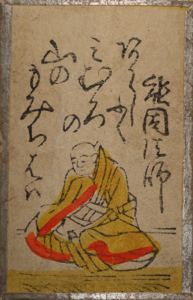 能因法師
あらしふく
三むろの
山の
もみちはハ